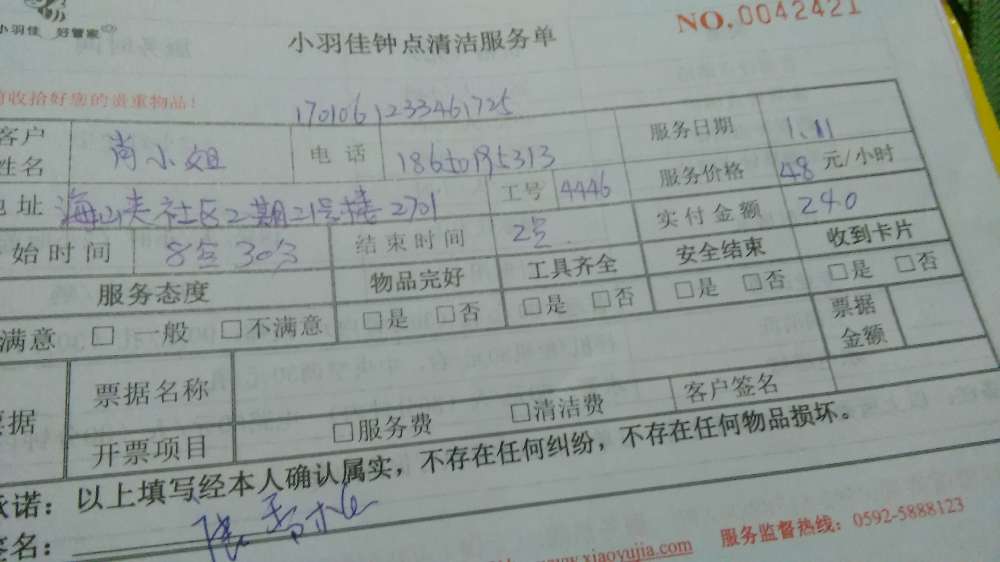 小羽佳 好管家
小羽佳钟点清洁服务单
NO.0042421
收拾好您的贵重物品!
1701061233461725
客户姓名 肖小姐 电话 服务日期 1.11
地址 社区2期21号楼2701 工号 4446 服务价格 48元/小时
始时间 8点30分 结束时间 2点 实付金额 240
服务态度 物品完好 工具齐全 安全结束 收到卡片
满意 □ 一般 □不满意 □是 □否 □是 □否 □是 □否 □是 □否
票据 票据名称 票据金额
开票项目 □服务费 □清洁费 客户签名
承诺:以上填写经本人确认属实,不存在任何纠纷,不存在任何物品损坏。
签名:
www.xiaoyujia.com 服务监督热线:0592-5888123